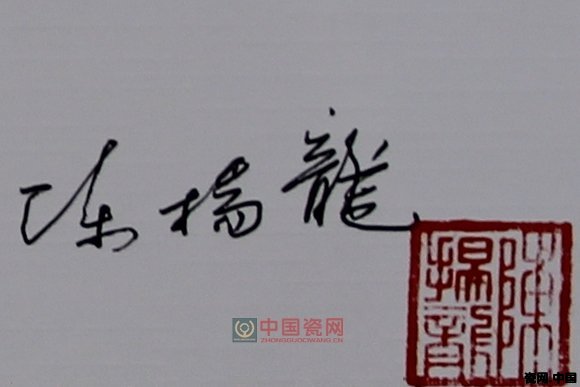 陈揚龍
陳揚龍
中国瓷网
ZHONGGUOCIWANG.CN
瓷网.中国